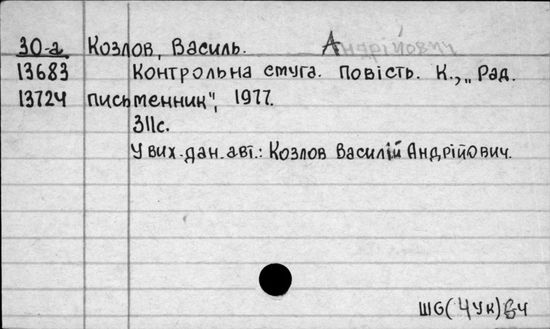 30-а Козлов, Василь. Андрійович
13683 Контрольна смуга. Повість. К., „Рад.
13724 письменник", 1977.
311с.
У вих. дан. авт.: Козлов Василій Андрійович.
Ш6(4Ук)64